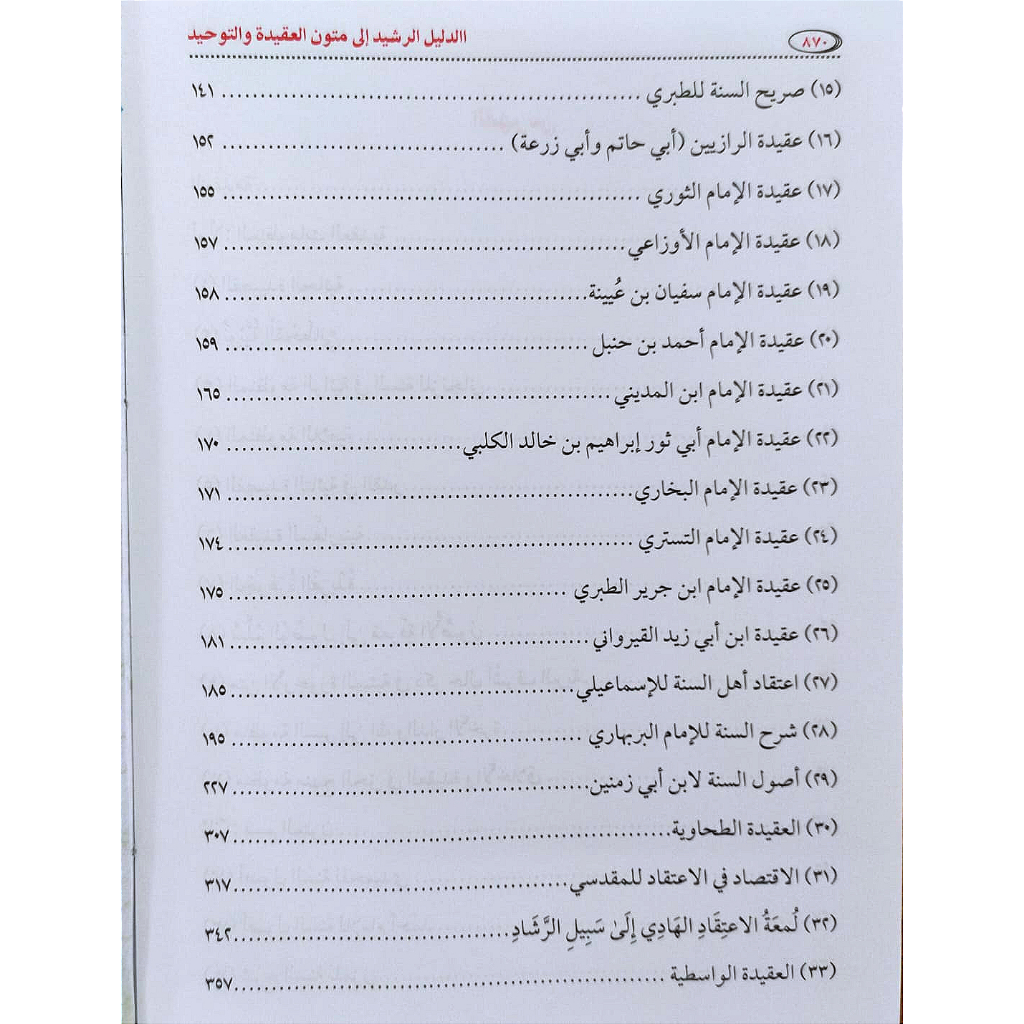 ٨٧٠ االدليل الرشيد إلى متون العقيدة والتوحيد
(١٥) صريح السنة للطبري ........................................ ١٤١
(١٦) عقيدة الرازيين (أبي حاتم وأبي زرعة) ........................................ ١٥٢
(١٧) عقيدة الإمام الثوري ........................................ ١٥٥
(١٨) عقيدة الإمام الأوزاعي ........................................ ١٥٧
(١٩) عقيدة الإمام سفيان بن عُيينة ........................................ ١٥٨
(٢٠) عقيدة الإمام أحمد بن حنبل ........................................ ١٥٩
(٢١) عقيدة الإمام ابن المديني ........................................ ١٦٥
(٢٢) عقيدة الإمام أبي ثور إبراهيم بن خالد الكلبي ........................................ ١٧٠
(٢٣) عقيدة الإمام البخاري ........................................ ١٧١
(٢٤) عقيدة الإمام التستري ........................................ ١٧٤
(٢٥) عقيدة الإمام ابن جرير الطبري ........................................ ١٧٥
(٢٦) عقيدة ابن أبي زيد القيرواني ........................................ ١٨١
(٢٧) اعتقاد أهل السنة للإسماعيلي ........................................ ١٨٥
(٢٨) شرح السنة للإمام البربهاري ........................................ ١٩٥
(٢٩) أصول السنة لابن أبي زمنين ........................................ ٢٢٧
(٣٠) العقيدة الطحاوية ........................................ ٣٠٧
(٣١) الاقتصاد في الاعتقاد للمقدسي ........................................ ٣١٧
(٣٢) لُمعَةُ الاعتِقَادِ الهَادِي إِلَىٰ سَبِيلِ الرَّشَادِ ........................................ ٣٤٢
(٣٣) العقيدة الواسطية ........................................ ٣٥٧